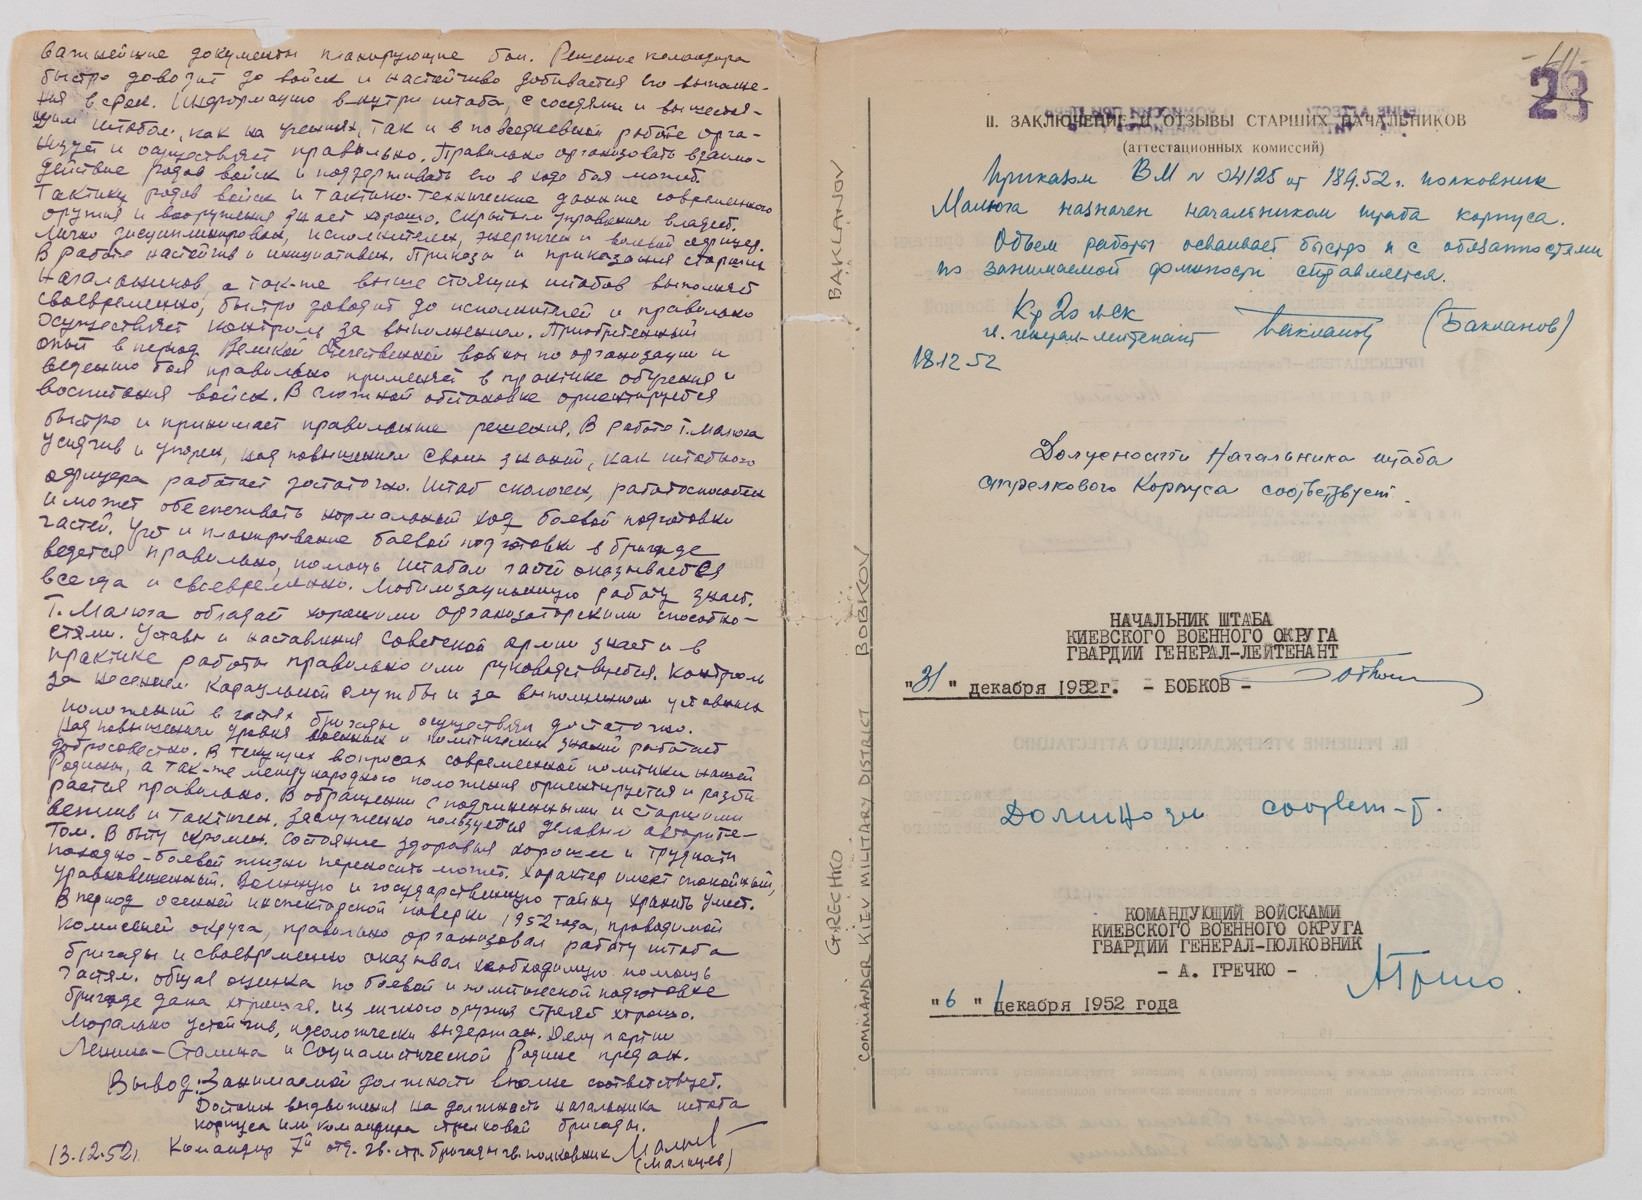 важнейшие документы планирующие бои. Решение командира
быстро доводит до войск и настойчиво добивается его выполне-
ния в срок. Информацию внутри штаба, с соседями и вышестоя-
щим штабом, как на учениях, так и в повседневной работе орга-
низует и осуществляет правильно. Правильно организовать взаимо-
действие родов войск и поддерживать его в ходе боя может.
Тактику родов войск и тактико-технические данные современного
оружия и вооружения знает хорошо. Скрытым управлением владеет.
Лично дисциплинирован, исполнителен, энергичен и волевой офицер.
В работе настойчив и инициативен. Приказы и приказания старших
начальников, а так-же выше стоящих штабов выполняет
своевременно, быстро доводит до исполнителей и правильно
осуществляет контроль за выполнением. Приобретенный
опыт в период Великой Отечественной войны по организации и
ведению боя правильно применяет в практике обучения и
воспитания войск. В сложной обстановке ориентируется
быстро и принимает правильные решения. В работе т. Малюга
усидчив и упорен, над повышением своих знаний, как штабного
офицера работает достаточно. Штаб сколочен, работоспособен
и может обеспечивать нормальный ход боевой подготовки
частей. Учет и планирование боевой подготовки в бригаде
ведется правильно, помощь штабам частей оказывается
всегда и своевременно. Мобилизационную работу знает.
Т. Малюга обладает хорошими организаторскими способно-
стями. Уставы и наставления Советской Армии знает и в
практике работы правильно ими руководствуется. Контроль
за несением караульной службы и за выполнением уставных
положений в частях бригады осуществлял достаточно.
Над повышением уровня военных и политических знаний работает
добросовестно. В текущих вопросах современной политики нашей
Родины, а так-же международного положения ориентируется и разби-
рается правильно. В обращении с подчиненными и старшими
вежлив и тактичен. Заслуженно пользуется деловым авторите-
том. В быту скромен. Состояние здоровья хорошее и трудности
походно-боевой жизни переносить может. Характер имеет спокойный,
уравновешенный. Военную и государственную тайну хранить умеет.
В период осенней инспекторской поверки 1952 года, проводимой
комиссией округа, правильно организовал работу штаба
бригады и своевременно оказывал необходимую помощь
частям. Общая оценка по боевой и политической подготовке
бригаде дана хорошая. Из личного оружия стреляет хорошо.
Морально устойчив, идеологически выдержан. Делу партии
Ленина-Сталина и Социалистической Родине предан.
Вывод: Занимаемой должности вполне соответствует.
Достоин выдвижения на должность начальника штаба
корпуса или командира стрелковой бригады.
13.12.52г. Командир 7й отд. гв. стр. бригады гв. полковник
(Малышев)
BAKLANOV
COMMANDER KIEV MILITARY DISTRICT BOBKOV
GRECHKO
28
II. ЗАКЛЮЧЕНИЕ И ОТЗЫВЫ СТАРШИХ НАЧАЛЬНИКОВ
(аттестационных комиссий)
Приказом ВМ № 04125 от 18.9.52 г. полковник
Малюга назначен начальником штаба корпуса.
Объем работы осваивает быстро и с обязанностями
по занимаемой должности справляется.
гв. генерал-лейтенант Бакланов (Бакланов)
18.12.52
Должности Начальника штаба
стрелкового Корпуса соответствует.
НАЧАЛЬНИК ШТАБА
КИЕВСКОГО ВОЕННОГО ОКРУГА
ГВАРДИИ ГЕНЕРАЛ-ЛЕЙТЕНАНТ
"31" декабря 1952г. - БОБКОВ -
Должности соответ-т.
КОМАНДУЮЩИЙ ВОЙСКАМИ
КИЕВСКОГО ВОЕННОГО ОКРУГА
ГВАРДИИ ГЕНЕРАЛ-ПОЛКОВНИК
- А. ГРЕЧКО -
"6" декабря 1952 года